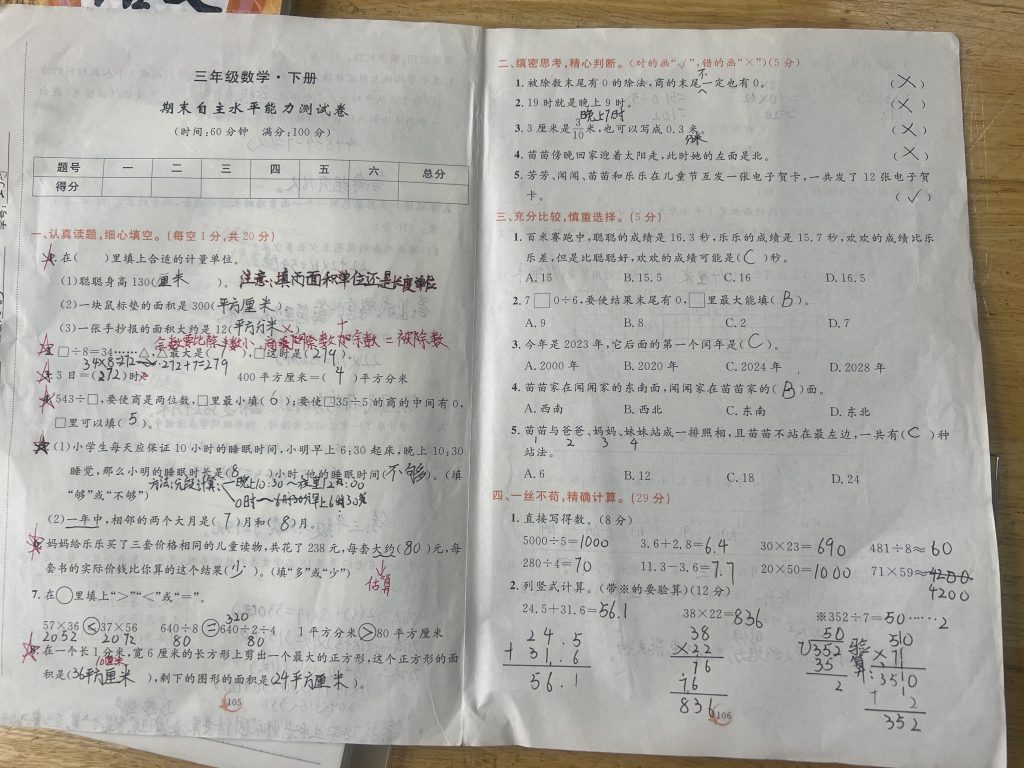 三年级数学·下册
期末自主水平能力测试卷
(时间:60分钟 满分:100分)
题号 一 二 三 四 五 六 总分
得分
一、认真读题,细心填空。(每空1分,共20分)
1.在( )里填上合适的计量单位。
(1)聪聪身高130(厘米)。 注意:填的面积单位还是长度单位
(2)一块鼠标垫的面积是300(平方厘米)
(3)一张手抄报的面积大约是12(平方分米)
余数要比除数小,商乘除数加余数=被除数
2.□÷8=34……△,△最大是(7),□这时是(279)。
34×8=272 272+7=279
3.3日=(72)时 400平方厘米=(4)平方分米
4.543÷□,要使商是两位数,□里最小填(6);要使□35÷5的商的中间有0,
□里可以填(5)。
5.(1)小学生每天应保证10小时的睡眠时间,小明早上6:30起床,晚上10:30
睡觉,那么小明的睡眠时长是(8)小时,他的睡眠时间(不够)。(填
方法:分段计算: 晚上10:30~夜里12点:00
“够”或“不够”)
0时~早上6时30分
(2)一年中,相邻的两个大月是(7)月和(8)月。
6.妈妈给乐乐买了三套价格相同的儿童读物,共花了238元,每套大约(80)元,每
套书的实际价钱比你算的这个结果(少)。(填“多”或“少”)
估算
7.在○里填上“>”“<”或“=”。
320
57×36<37×56 640÷8=640÷2÷4 1平方分米>80平方厘米
2052 2072 80 80
8.在一个长1分米,宽6厘米的长方形上剪出一个最大的正方形,这个正方形的面
10厘米
积是(36平方厘米),剩下的图形的面积是(24平方厘米)。
105
二、缜密思考,精心判断。(对的画“√”,错的画“×”)(5分)
不
1.被除数末尾有0的除法,商的末尾一定也有0。 (×)
2.19时就是晚上9时。 (×)
晚上7时
3.3厘米是3/10米,也可以写成0.3米。 (×)
分米
4.苗苗傍晚回家迎着太阳走,此时她的左面是北。 (×)
5.芳芳、闹闹、苗苗和乐乐在儿童节互发一张电子贺卡,一共发了12张电子贺
卡。 (√)
三、充分比较,慎重选择。(5分)
1.百米赛跑中,聪聪的成绩是16.3秒,乐乐的成绩是15.7秒,欢欢的成绩比乐
乐差,但是比聪聪好,欢欢的成绩可能是(C)秒。
A.15 B.15.5 C.16 D.16.5
2.7□0÷6,要使结果末尾有0,□里最大能填(B)。
A.9 B.8 C.2 D.7
3.今年是2023年,它后面的第一个闰年是(C)。
A.2000年 B.2020年 C.2024年 D.2028年
4.苗苗家在闹闹家的东南面,闹闹家在苗苗家的(B)面。
A.西南 B.西北 C.东南 D.东北
5.苗苗与爸爸、妈妈、妹妹站成一排照相,且苗苗不站在最左边,一共有(C)种
1 2 3 4
站法。
A.6 B.12 C.18 D.24
四、一丝不苟,精确计算。(29分)
1.直接写得数。(8分)
5000÷5=1000 3.6+2.8=6.4 30×23=690 481÷8≈60
280÷4=70 11.3-3.6=7.7 20×50=1000 71×59≈4200
4200
2.列竖式计算。(带※的要验算)(12分)
24.5+31.6=56.1 38×22=836 ※352÷7=50……2
24.5 38 50 验算: 50
+ 31.6 ×22 7 352 ×7
56.1 76 35 350
76 2 + 2
836 352
106